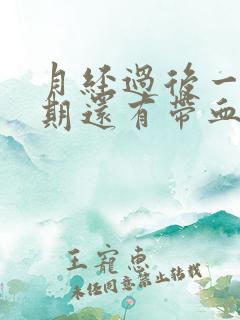 月經過後一
期還有帶血
王寵惠
未经同意禁止转载